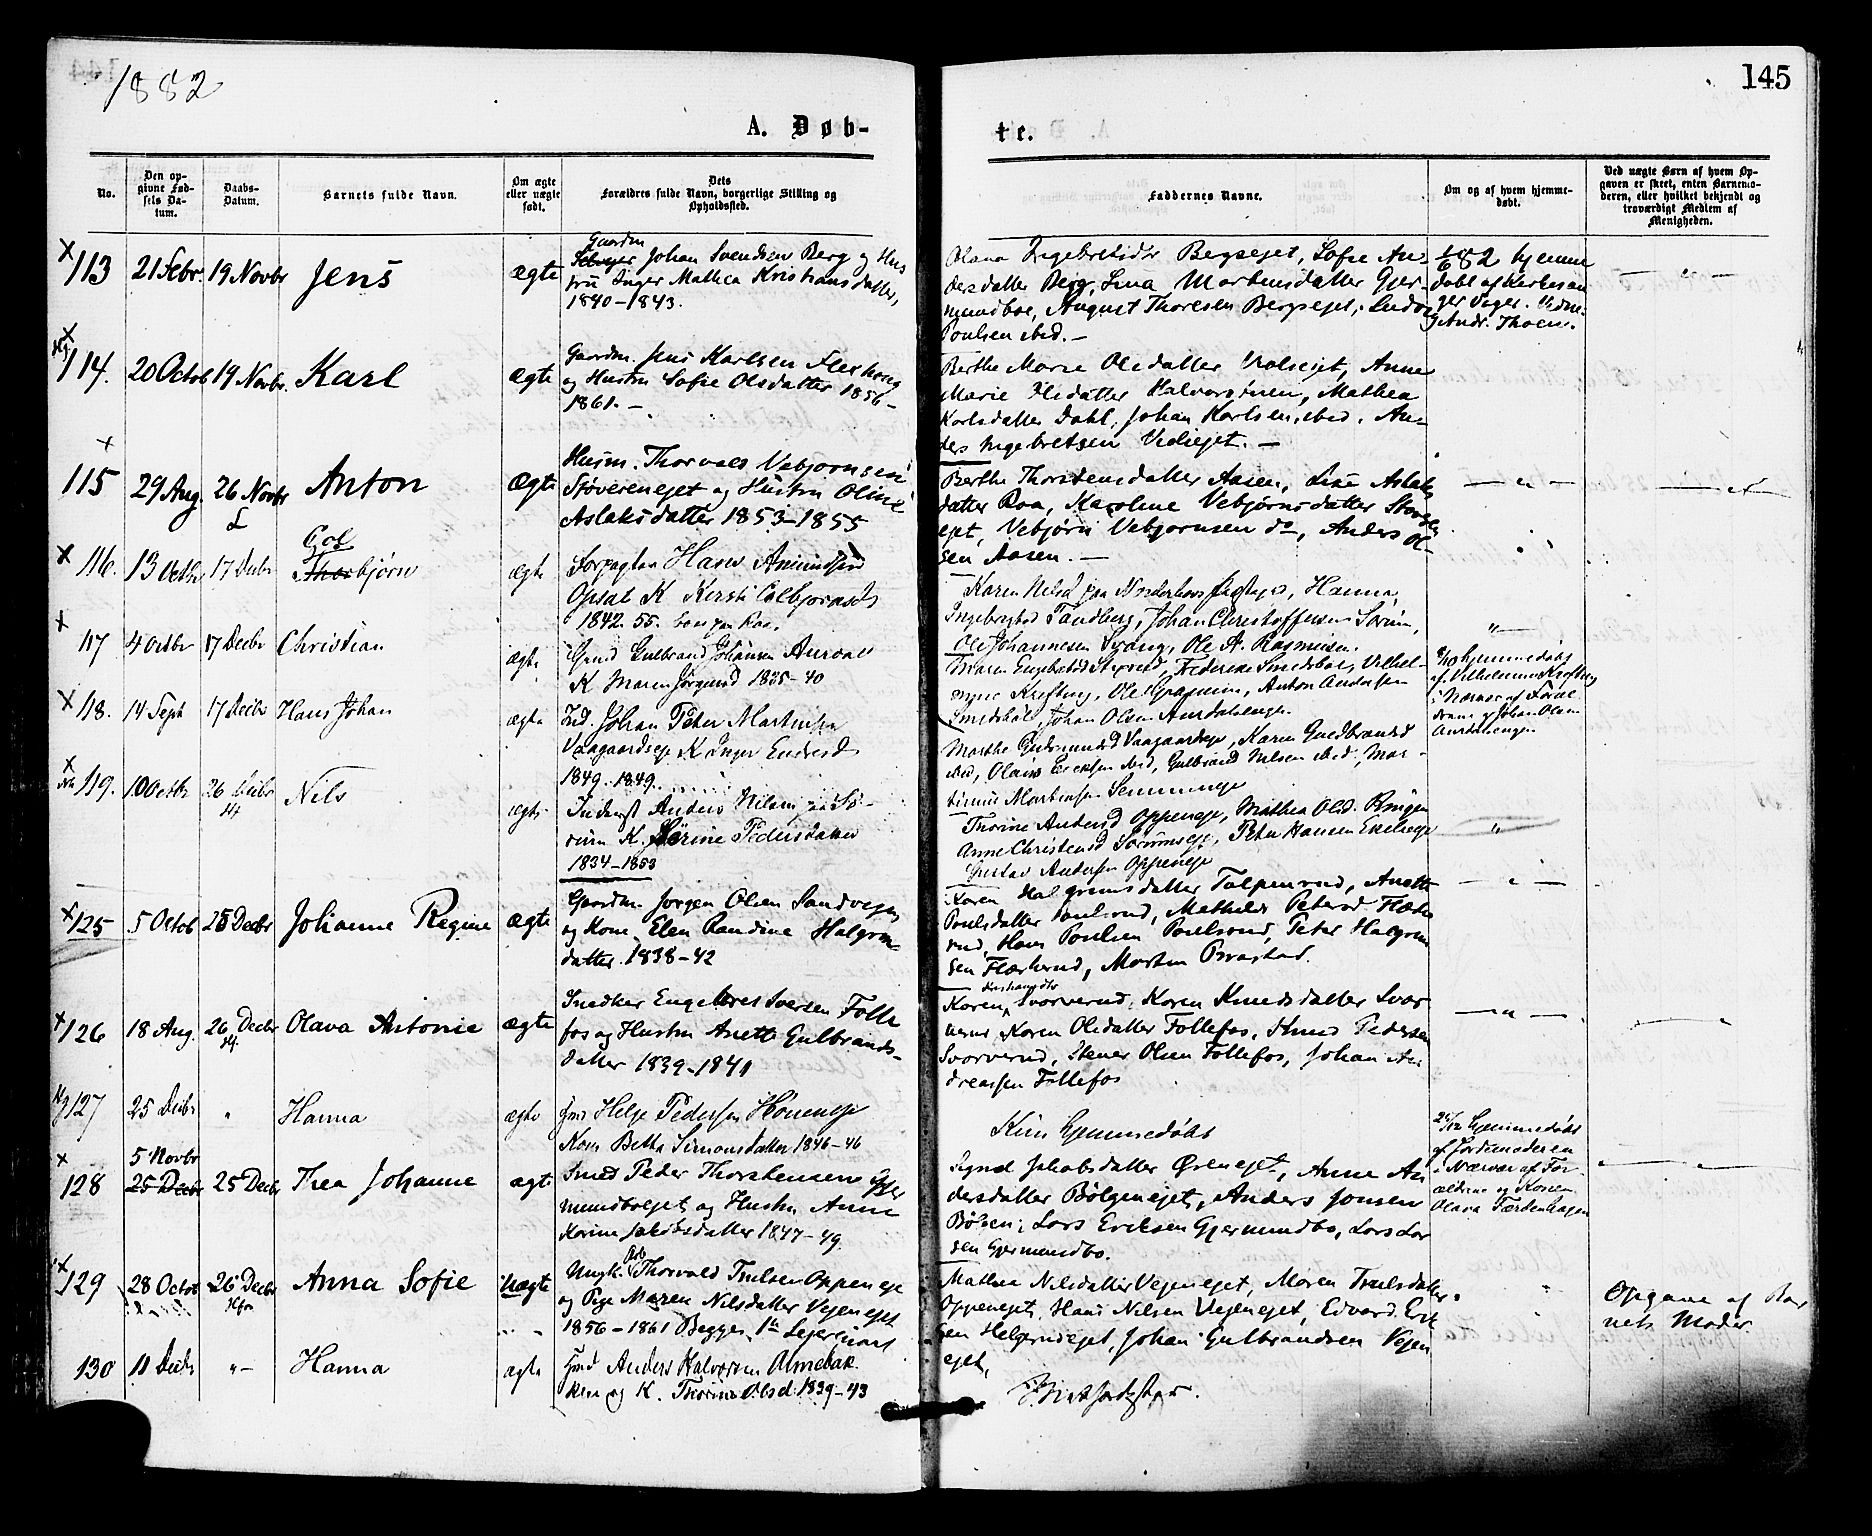 1882
145
A. Døb-
te.
No.
Den op-
givne Fød-
sels Da-
tum.
Daabs-
Datum.
Barnets fulde Navn.
Om ægte
eller uægte
født.
Dets
Forældres fulde Navn, borgerlige Stilling og
Opholdssted.
Faddernes Navne.
Om og af hvem hjemme-
døbt.
Ved uægte Børn af hvem Op-
gaven er skeet, enten Barnemo-
deren, eller hvilket bekjendt og
troværdigt Medlem af
Menigheden.
113 21 Febr. 19 Novbr Jens ægte
Gaardm
Johan Svendsen Berg og Hus
tru Inger Mathea Kristiansdatter,
1840-1843.
Olava Ingebretsdr Bergsejet, Sofie An
dersdatter Berg, Lina Martensdatter Gjer-
mundboe, August Thoresen Bergsejet,
Poulsen ibid. -
1/6 82 hjemme
døbt af Kirkesan
ger
Andr. Thoen.
114. 20 Octob 19 Novbr. Karl ægte
Gaardm. Jens Karlsen
og Hustru Sofie Olsdatter 1856-
1861. -
Berthe Marie Olsdatter Anne
Marie Olsdatter Mathea
Karlsdatter Dahl, Johan Karlsen, ibid. An-
ders Ingebretsen -
115 29 Aug. 26 Novbr Anton ægte
Husm. Thorvald Vebjørnsen
Støverenejet og Hustru Oline
Aslaksdatter 1853-1855
Berthe Thorstensdatter Aasen, Lise Aslaks
datter Roa, Karoline Vebjørnsdatter Støveren
ejet, Vebjørn Vebjørnsen do, Anders Ol-
sen Aasen. -
116. 13 Octbr 17 Decbr
Col
Thorbjørn ægte
Forpagter Hans Amundsen
Opsal K Kersti Colbjørnsd
1842. 55.
Karen Nilsd paa Norderhovs Hanna
Ingebrigtsd Tandberg, Johan Christoffersen Sørum,
Ole Johannesen Svang, Ole A. Rasmusen.
117 4 Octbr 17 Decbr Christian ægte
Gmd Gulbrand Johansen Aurdal
K Maren Jørgensd 1835-40
Maren Engebretsd Frederikke Smedsbøl, Vilhel-
mine Krefting, Ole Anton Andersen
Smedsbøl, Johan Olsen Aurdalsengen
8/10 hjemmedøbt
af Vilhelmine Krefting
i Nærvær af Foræl
drene og Johan Olsen
Aurdalsengen
118. 14 Sept 17 Decbr Hans Johan ægte
Ind. Johan Peter Martinsen
Vaagaardseje K Inger Endresd
1849. 1849.
Marthe Gudmundsd Vaagaardseje, Karen Gudbrandsd
ibid, Olaus Ericksen ibid, Gulbrand Nilsen ibid, Mar-
tinius Martinsen Semmeneje
119. 10 Octbr 26 Decbr Nils ægte
Inderst Anders Nilsen paa Sø-
rum K. Karine Pedersdatter
1834-1853
Thorine Andersd Oppeneje, Mathea Olsd. Ringen
Anne Christensd Sørumseje, Peter Hansen
Gustav Andersen Oppeneje
125 5 Octob 25 Decbr Johanne Regine ægte
Gaardm Jørgen Olsen Sandvegen
og Kone Elen Randine Halgrims-
datter. 1838-42
Karen Halgrimsdatter Anette
Poulsdatter Poulsrud, Mathilde Petersd
rud, Hans Poulsen Poulsrud, Peter Halgrim
sen Morten Braastad.
126 18 Aug. 26 Decbr Olava Antonie ægte
Snedker Engebret Iversen Folle
fos og Hustru Anette Gulbrands-
datter 1839-1841
Karen Svarverud, Karen Knudsdatter Svar
verud, Karen Olsdatter Follefos, Knud Pedersen
Svarverud, Stener Olsen Follefos, Johan An
dreassen Follefos
127 25 Decbr " Hanna ægte
Gmd Helge Pedersen Høneneje
Kone Berthe Simonsdatter 1846-46
Kun hjemmedøbt
25/12 hjemmedøbt
af Jordemoderen
i Nærvær af For-
ældrene og Konen
Olava
128
5 Novbr
25 Decbr 25 Decbr Thea Johanne ægte
Smed Peder Thorstensen Gjer
mundboejet og Hustru Anne
Karine Jakobsdatter 1847-49
Signe Jakobsdatter Øienejet, Anne An
dersdatter Bølgenejet, Anders Jonsen
Bølgen, Lars Eriksen Gjermundbo, Lars Lar
sen Gjermundbo.
129 28 Octob 26 Decbr Anna Sofie uægte
Ungk. Arb Thorvald Trulsen Oppeneje
og Pige Maren Nilsdatter Vejenejet
1856-1861 Begges 1ste Leiermaal
Mathea Nilsdatter Vejenejet, Maren Trulsdatter
Oppenejet, Hans Nilsen Vejenejet, Edvard Erik
sen Helgerudejet, Johan Gulbrandsen Vejen
ejet,
Opgave af Bar
nets Moder.
130 11 Decbr "- Hanna ægte
Gmd Anders Halvorsen Almebak
ken og K. Thorine Olsd. 1839-43